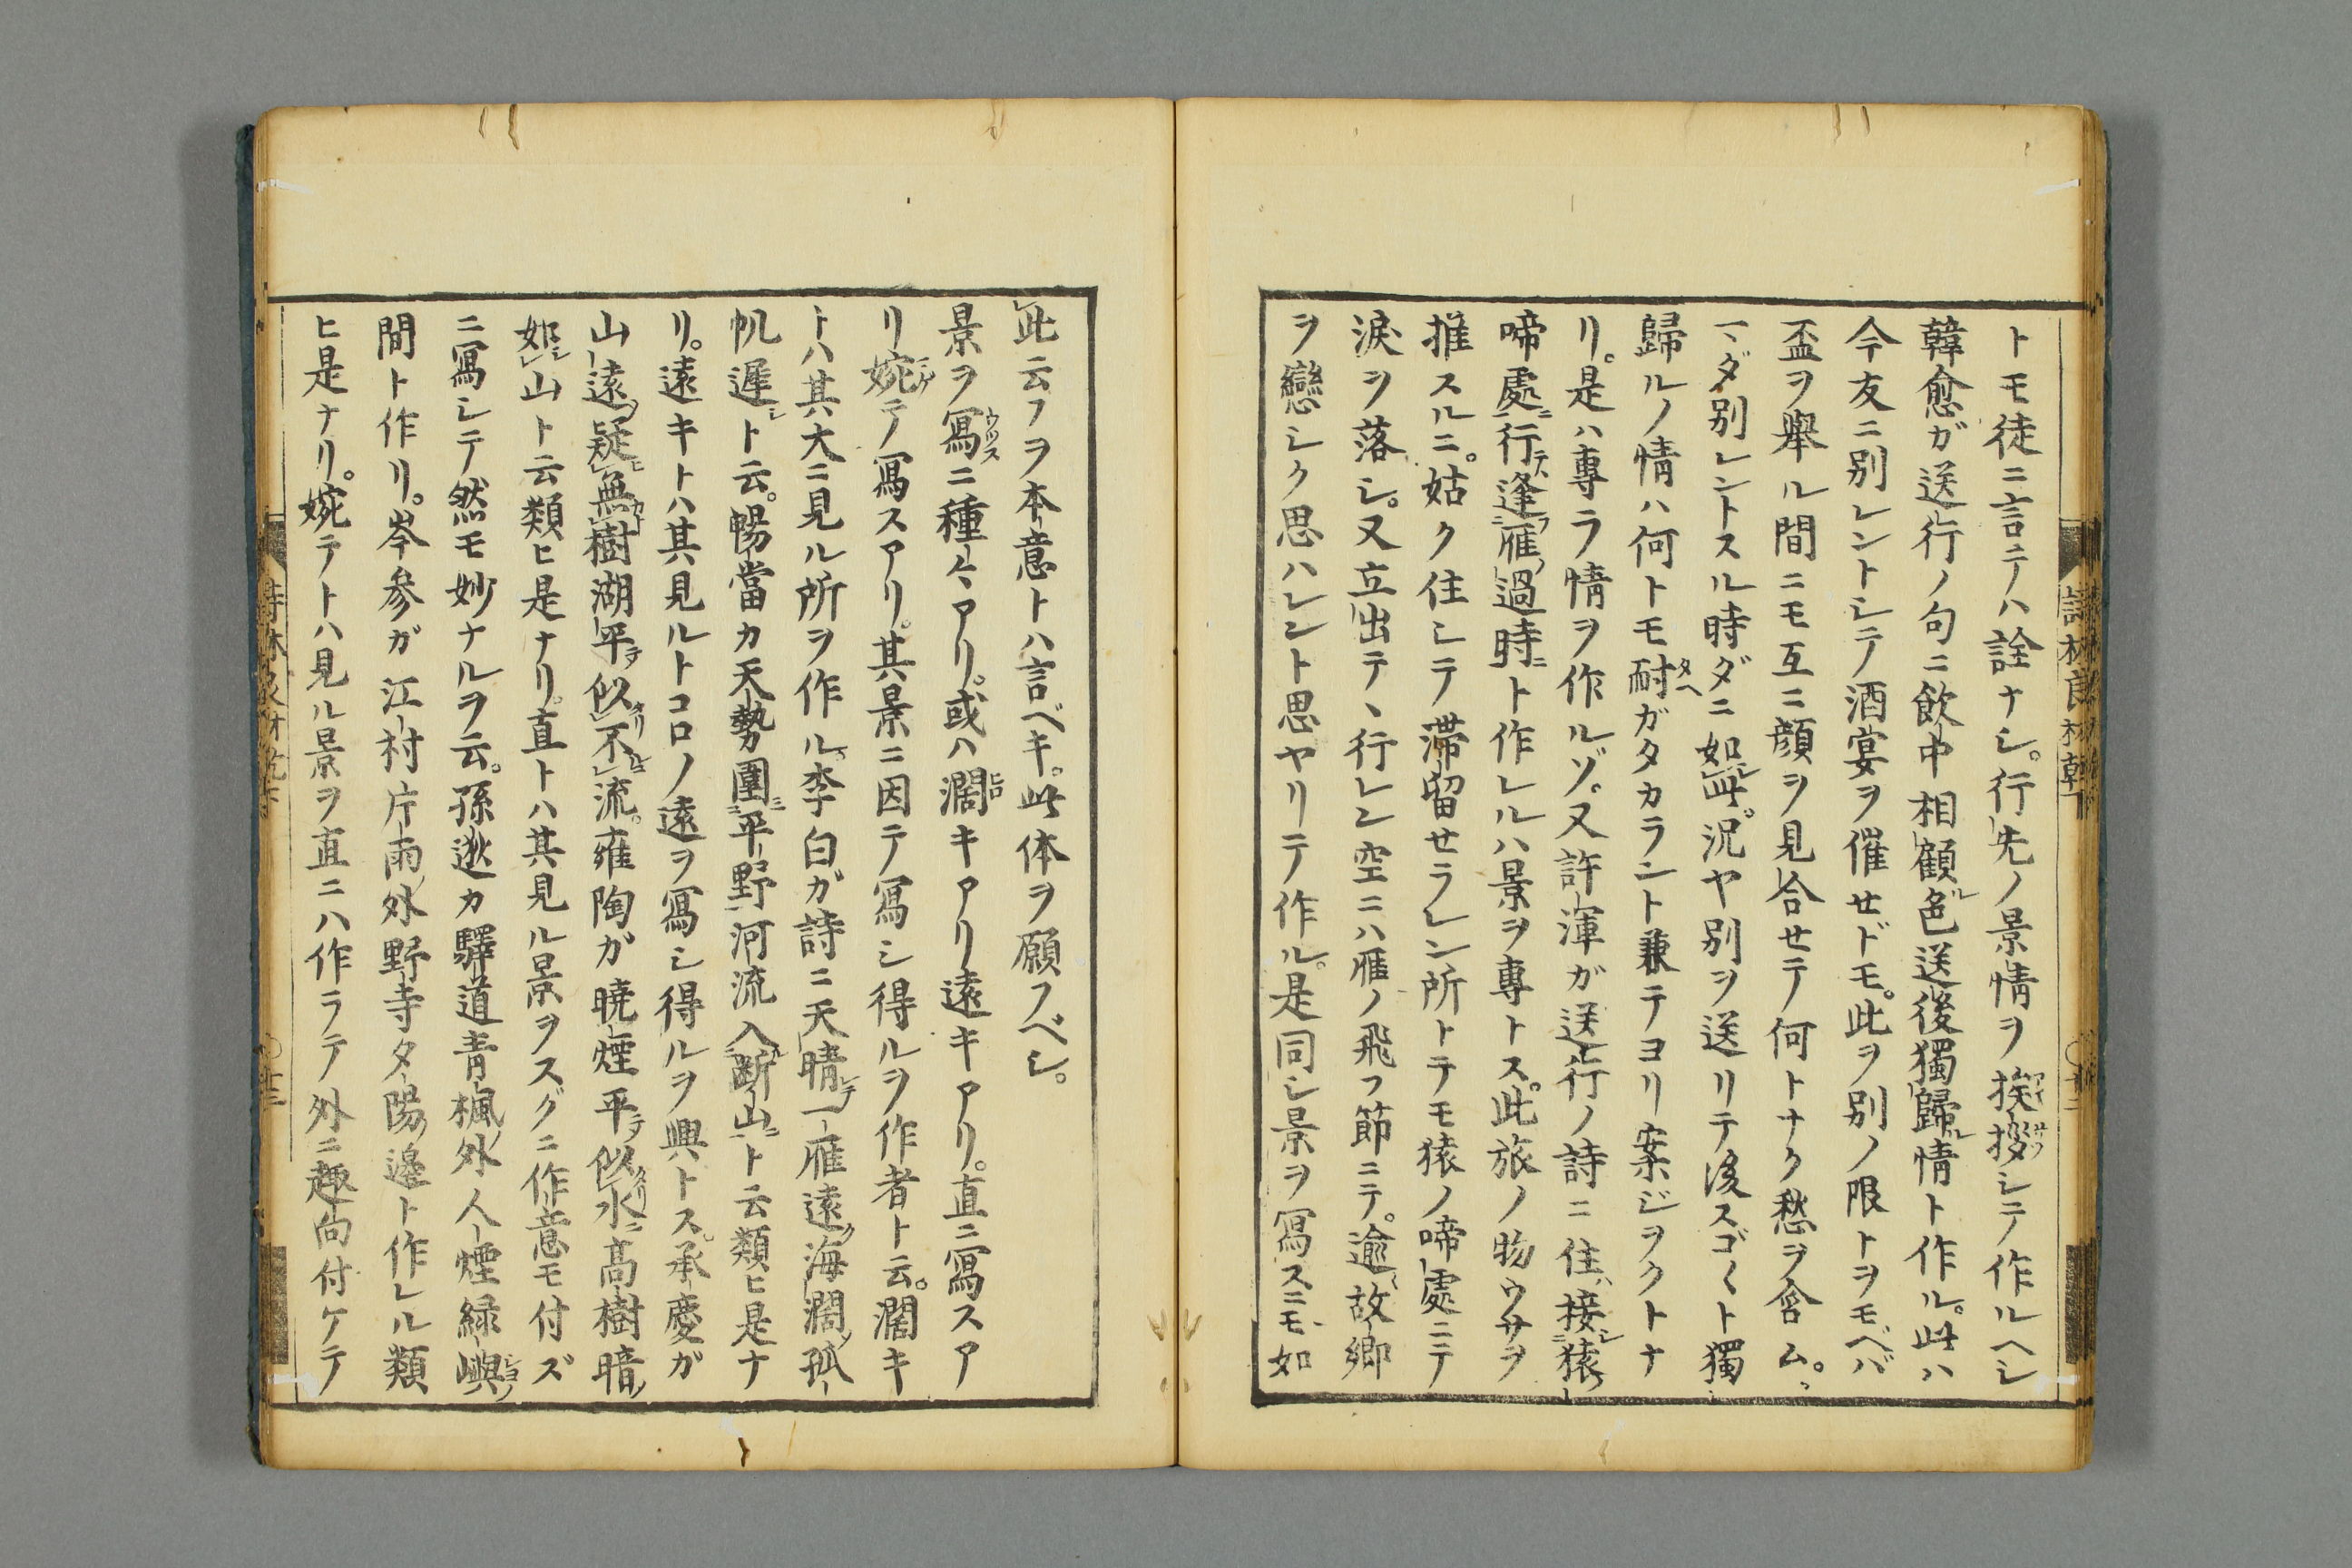 トモ徒ニ言ニテハ詮ナシ。行先ノ景情ヲ挨拶シテ作ルヘシ
韓愈ガ送行ノ句ニ飲中相顧色送後獨歸情ト作ル。此ハ
今友ニ別レントシテ酒宴ヲ催セドモ。此ヲ別ノ限トヲモヘバ
盃ヲ舉ル間ニモ互ニ顔ヲ見合セテ何トナク愁ヲ含ム。
マダ別レントスル時ダニ如此。況ヤ別ヲ送リテ後スゴ〱ト獨
歸ルノ情ハ何トモ耐ガタカラント兼テヨリ案ジヲクトナ
リ。是ハ專ラ情ヲ作ルゾ。又許渾ガ送行ノ詩ニ住接猿
啼處行逢雁過時ト作レルハ景ヲ專トス。此旅ノ物ウサヲ
推スルニ。姑ク住シテ滞留セラレン所トテモ猿ノ啼處ニテ
淚ヲ落シ。又立出テヽ行レン空ニハ雁ノ飛フ節ニテ。逾故郷
ヲ戀シク思ハレント思ヤリテ作ル。是同シ景ヲ寫スニモ如
此云フヲ本意トハ言ベキ。此体ヲ願フベシ。
景ヲ寫ニ種々アリ。或ハ濶キアリ遠キアリ。直ニ寫スア
リ婉テ寫スアリ。其景ニ因テ寫シ得ルヲ作者ト云。濶キ
トハ其大ニ見ル所ヲ作ル李白ガ詩ニ天晴一雁遠海濶孤
帆遲ト云。暢當カ天勢圍平野河流入断山ト云類ヒ是ナ
リ。遠キトハ其見ルトコロノ遠ヲ寫シ得ルヲ興トス。承慶ガ
山遠疑無樹湖平似不流。雍陶ガ暁煙平似水高樹暗
如山ト云類ヒ是ナリ。直トハ其見ル景ヲスグニ作意モ付ズ
ニ寫シテ然モ妙ナルヲ云。孫逖カ驛道青楓外人煙緑嶼
間ト作リ。岑参ガ江村片雨外野寺夕陽邊ト作レル類
ヒ是ナリ。婉テトハ見ル景ヲ直ニハ作ラテ外ニ趣向付ケテ